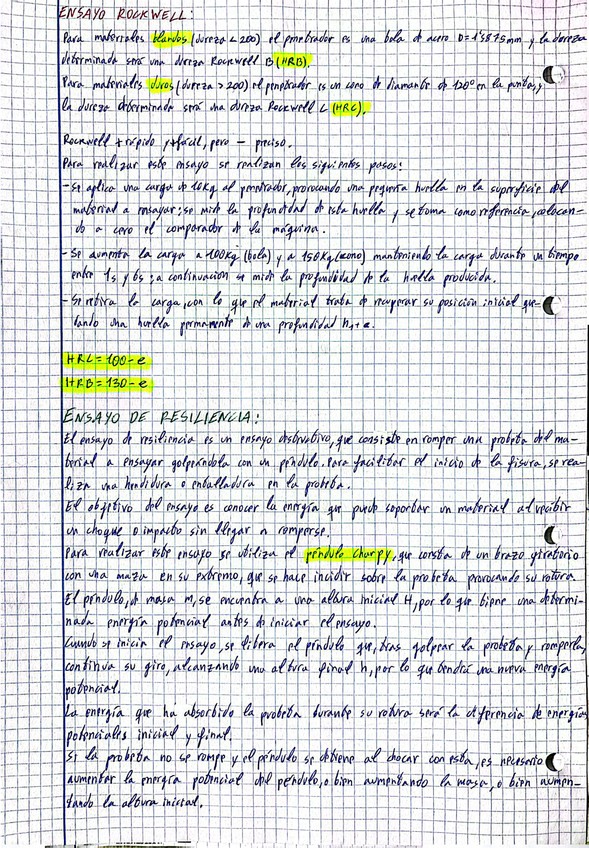 ENSAYO ROCKWELL:
Para materiales blandos (dureza < 200) el penetrador es una bola de acero D=1'5875mm y la dureza
determinada será una dureza Rockwell B (HRB).
Para materiales duros (dureza > 200) el penetrador es un cono de diamante de 120º en la punta, y
la dureza determinada será una dureza Rockwell C (HRC).
Rockwell + rápido y + fácil, pero - preciso.
Para realizar este ensayo se realizan los siguientes pasos:
- Se aplica una carga de 10Kg al penetrador, provocando una pequeña huella en la superficie del
material a ensayar; se mide la profundidad de esta huella y se toma como referencia, colocan-
do a cero el comparador de la máquina.
- Se aumenta la carga a 100Kg (bola) y a 150Kg (cono) manteniendo la carga durante un tiempo
entre 1s y 6s; a continuación se mide la profundidad de la huella producida.
- Se retira la carga, con lo que el material trata de recuperar su posición inicial que-
dando una huella permanente de una profundidad h1+e.
HRC = 100 - e
HRB = 130 - e
ENSAYO DE RESILIENCIA:
El ensayo de resiliencia es un ensayo destructivo, que consiste en romper una probeta del ma-
terial a ensayar golpeándola con un péndulo. Para facilitar el inicio de la fisura, se rea-
liza una hendidura o entalladura en la probeta.
El objetivo del ensayo es conocer la energía que puede soportar un material al recibir
un choque o impacto sin llegar a romperse.
Para realizar este ensayo se utiliza el péndulo Charpy, que consta de un brazo giratorio
con una maza en su extremo, que se hace incidir sobre la probeta provocando su rotura.
El péndulo, de masa m, se encuentra a una altura inicial H, por lo que tiene una determi-
nada energía potencial antes de iniciar el ensayo.
Cuando se inicia el ensayo, se libera el péndulo que, tras golpear la probeta y romperla,
continua su giro, alcanzando una altura final h, por lo que tendrá una nueva energía
potencial.
La energía que ha absorbido la probeta durante su rotura será la diferencia de energías
potenciales inicial y final.
Si la probeta no se rompe y el péndulo se detiene al chocar con esta, es necesario
aumentar la energía potencial del péndulo, o bien aumentando la masa, o bien aumen-
tando la altura inicial.